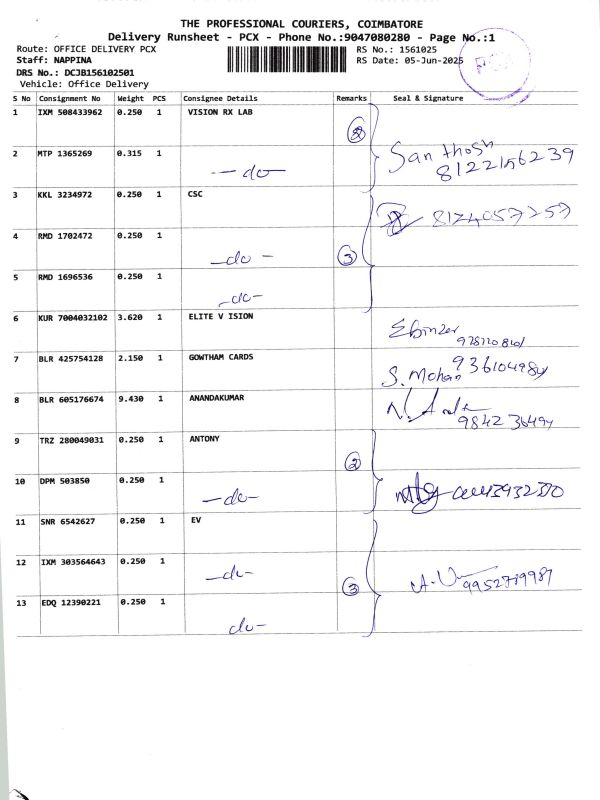 THE PROFESSIONAL COURIERS, COIMBATORE
Delivery Runsheet - PCX - Phone No.:9047080280 - Page No.:1
Route: OFFICE DELIVERY PCX RS No.: 1561025
Staff: NAPPINA RS Date: 05-Jun-2025
DRS No.: DCJB156102501
Vehicle: Office Delivery
S No Consignment No Weight PCS Consignee Details Remarks Seal & Signature
1 IXM 508433962 0.250 1 VISION RX LAB
2
2 MTP 1365269 0.315 1 -do- Santhosh
8122156239
3 KKL 3234972 0.250 1 CSC 8124057257
4 RMD 1702472 0.250 1 -do- 3
5 RMD 1696536 0.250 1 -do-
6 KUR 7004032102 3.620 1 ELITE V ISION Ebinzer
7 BLR 425754128 2.150 1 GOWTHAM CARDS S. Mohan
8 BLR 605176674 9.430 1 ANANDAKUMAR
9 TRZ 280049031 0.250 1 ANTONY
2
10 DPM 503850 0.250 1 -do-
11 SNR 6542627 0.250 1 EV
12 IXM 303564643 0.250 1 -do- 3
13 EDQ 12390221 0.250 1 do-